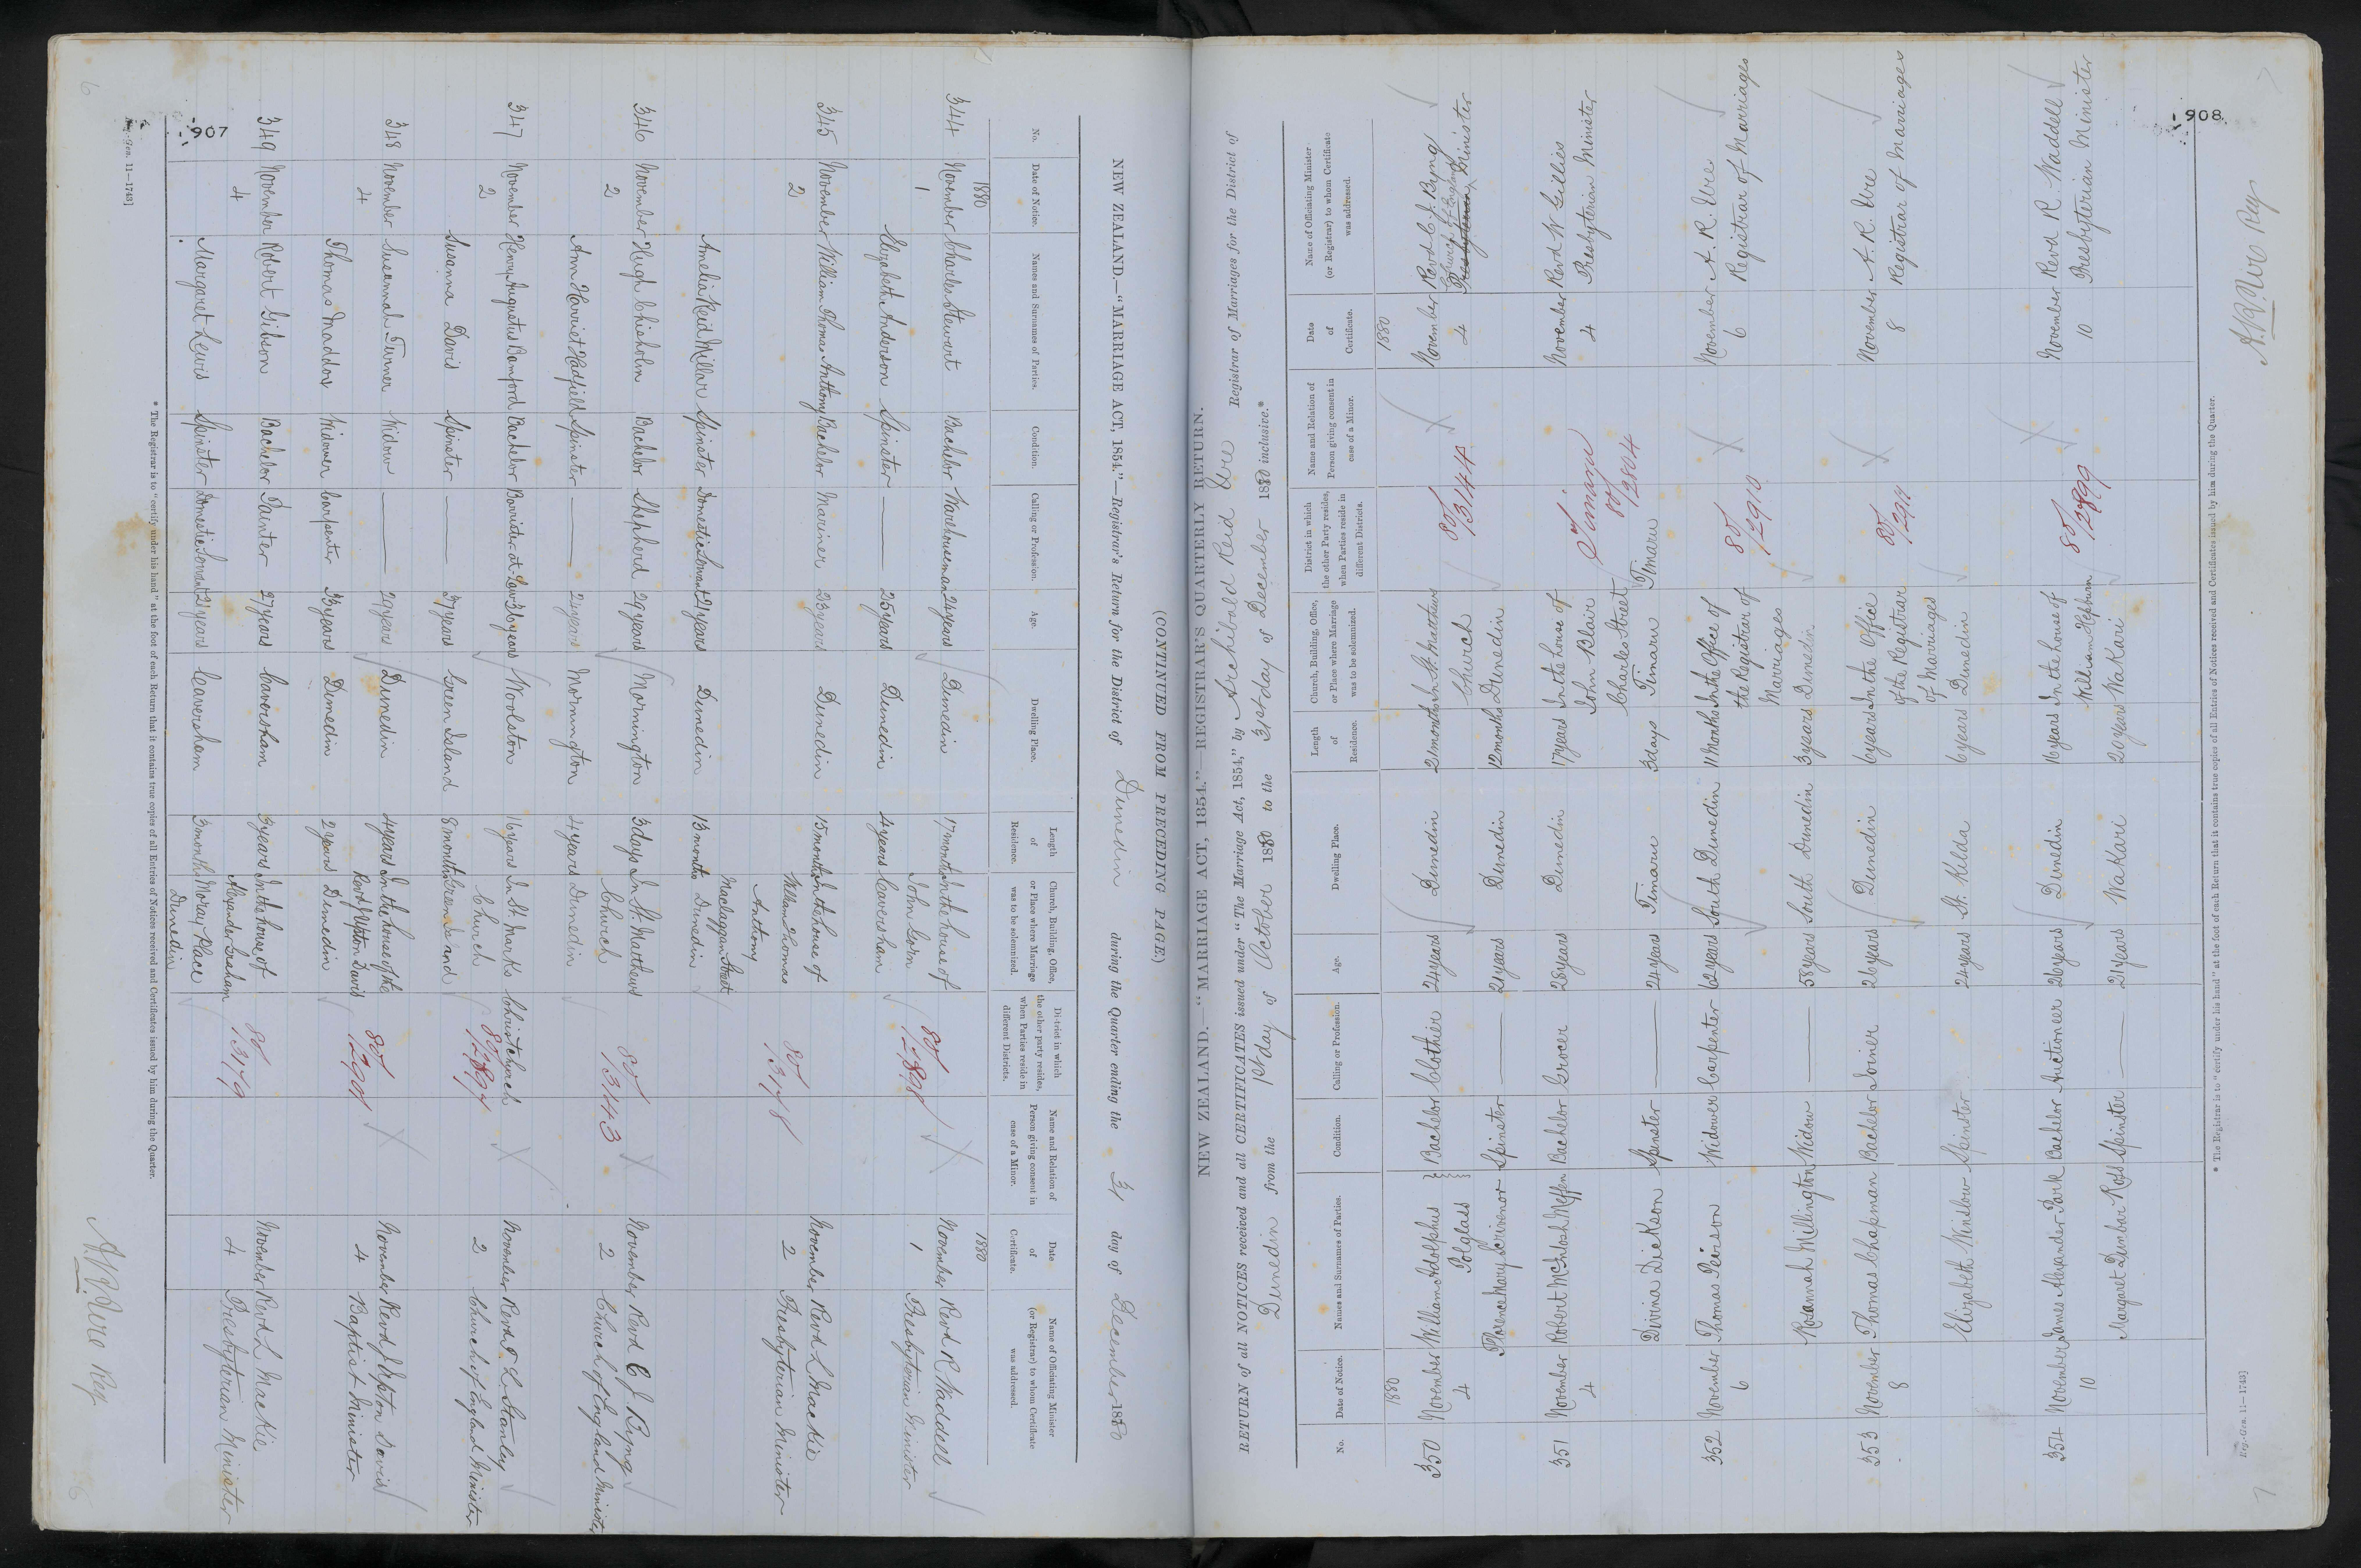 (CONTINUED FROM PRECEDING PAGE.)
NEW ZEALAND.—"MARRIAGE ACT, 1854."—Registrar's Return for the District of Dunedin during the Quarter ending the 31 day of December 1880
No. Date of Notice. Names and Surnames of Parties. Condition. Calling or Profession. Age. Dwelling Place. Length of Residence. Church, Building, Office, or Place where Marriage was to be solemnized. District in which the other party resides, when Parties reside in different Districts. Name and Relation of Person giving consent in case of a Minor. Date of Certificate. Name of Officiating Minister (or Registrar) to whom Certificate was addressed.
1880 1880
344 November Charles Stewart Bachelor Warehouseman 24 years Dunedin 17 months In the house of 80/2898 November Revd R Waddell
1 John Gorn 1 Presbyterian Minister
Elizabeth Anderson Spinster — 25 years Dunedin 4 years Caversham
345 November William Thomas Anthony Bachelor Mariner 23 years Dunedin 15 months In the house of 80/3178 November Revd L Mackie
2 William Thomas 2 Presbyterian Minister
Anthony
Maclaggan Street
Amelia Reid Millar Spinster Domestic Servant 21 years Dunedin 13 months Dunedin
346 November Hugh Chisholm Bachelor Shepherd 29 years Mornington 3 days In St. Matthews 80/3143 November Revd C J Byng
2 Church 2 Church of England Minister
Ann Harriet Hadfield Spinster — 24 years Mornington 4 years Dunedin
347 November Henry Augustus Bamford Bachelor Barrister-at-Law 36 years Woolston 16 years In St. Marks Christchurch November Revd T L Stanley
2 Church 80/2897 2 Church of England Minister
Susanna Davis Spinster — 37 years Green Island 8 months Green Island
348 November Susannah Turner Widow — 29 years Dunedin 4 years In the house of the 80/2901 November Revd J Upton Davis
4 Revd J Upton Davis 4 Baptist Minister
Thomas Maddox Widower Carpenter 33 years Dunedin 2 years Dunedin
349 November Robert Gibson Bachelor Painter 27 years Caversham 3 years In the house of 80/3179 November Revd L Mackie
4 Alexander Graham 4 Presbyterian Minister
Margaret Lewis Spinster Domestic Servant 21 years Caversham 3 months Moray Place
Dunedin
907
* The Registrar is to "certify under his hand" at the foot of each Return that it contains true copies of all Entries of Notices received and Certificates issued by him during the Quarter.
Reg.-Gen. 11—1743]
A. R. Ure Reg
6
NEW ZEALAND.—"MARRIAGE ACT, 1854."—REGISTRAR'S QUARTERLY RETURN.
RETURN of all NOTICES received and all CERTIFICATES issued under "The Marriage Act, 1854," by Archibald Reid Ure Registrar of Marriages for the District of
Dunedin from the 1st day of October 1880 to the 31st day of December 1880 inclusive.*
No. Date of Notice. Names and Surnames of Parties. Condition. Calling or Profession. Age. Dwelling Place. Length of Residence. Church, Building, Office, or Place where Marriage was to be solemnized. District in which the other Party resides, when Parties reside in different Districts. Name and Relation of Person giving consent in case of a Minor. Date of Certificate. Name of Officiating Minister (or Registrar) to whom Certificate was addressed.
1880 1880
350 November William Adolphus Bachelor Clothier 24 years Dunedin 21 months In St. Matthews 80/3144 November Revd C. J. Byng
4 Polglass Church 4 Church of England Presbyterian Minister
Florence Mary Scrivenor Spinster — 21 years Dunedin 12 months Dunedin
351 November Robert McIntosh Meffen Bachelor Grocer 28 years Dunedin 17 years In the house of Timaru November Revd W Gillies
4 John Blair 80/2804 4 Presbyterian Minister
Charles Street
Divina Dickson Spinster — 24 years Timaru 3 days Timaru Timaru
352 November Thomas Peirson Widower Carpenter 62 years South Dunedin 11 Months In the Office of 80/2910 November A. R. Ure
6 the Registrar of 6 Registrar of Marriages
Marriages
Rosannah Millington Widow — 58 years South Dunedin 3 years Dunedin
353 November Thomas Chapman Bachelor Joiner 26 years Dunedin 6 years In the Office 80/2911 November A. R. Ure
8 of the Registrar 8 Registrar of Marriages
of Marriages
Elizabeth Winslow Spinster 24 years St. Kilda 6 years Dunedin
354 November James Alexander Park Bachelor Auctioneer 26 years Dunedin 16 years In the house of 80/2899 November Revd R. Waddell
10 William Hepburn 10 Presbyterian Minister
Margaret Dunbar Ross Spinster — 21 years Wakari 20 years Wakari
908
* The Registrar is to "certify under his hand" at the foot of each Return that it contains true copies of all Entries of Notices received and Certificates issued by him during the Quarter.
Reg.-Gen. 11—1743]
A. R. Ure Reg
7